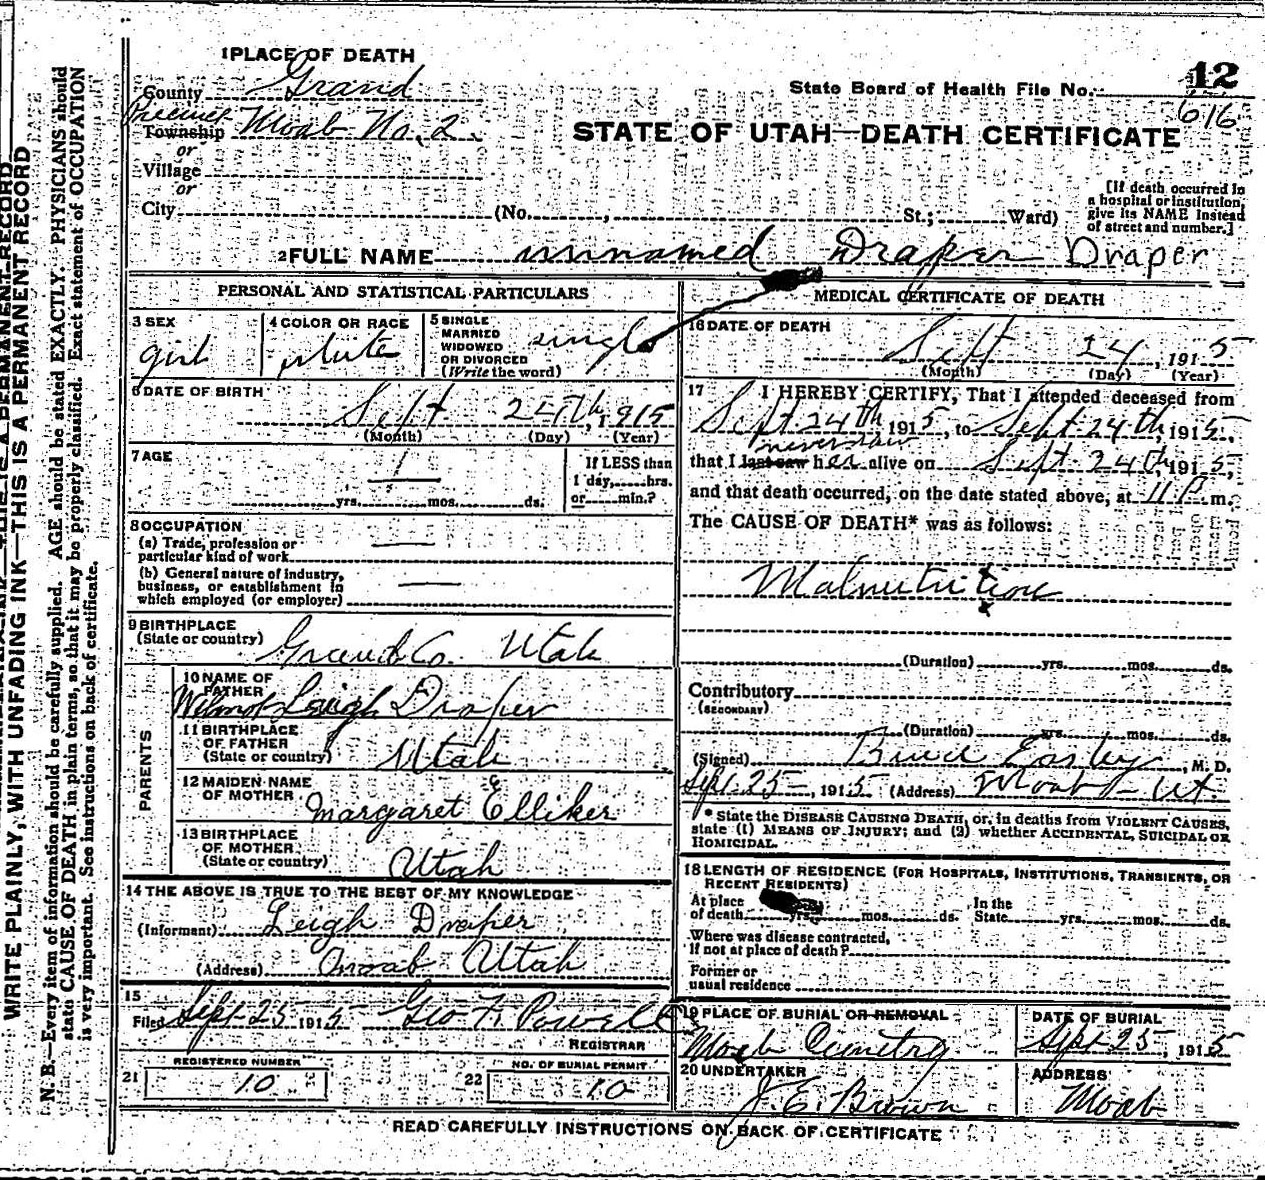 1 PLACE OF DEATH
County Grand
State Board of Health File No. 12
616
Precinct Township Moab No. 2
STATE OF UTAH—DEATH CERTIFICATE
or
Village
or
City (No. , St.; Ward)
[If death occurred in a hospital or institution, give its NAME instead of street and number.]
2 FULL NAME unnamed Draper Draper
PERSONAL AND STATISTICAL PARTICULARS
3 SEX girl
4 COLOR OR RACE white
5 SINGLE MARRIED WIDOWED OR DIVORCED (Write the word) single
6 DATE OF BIRTH Sept 24th, 1915
(Month) (Day) (Year)
7 AGE
yrs. mos. ds.
If LESS than 1 day, hrs. or min.?
8 OCCUPATION
(a) Trade, profession or particular kind of work —
(b) General nature of industry, business, or establishment in which employed (or employer) —
9 BIRTHPLACE (State or country) Grand Co. Utah
PARENTS
10 NAME OF FATHER Wilmot Leigh Draper
11 BIRTHPLACE OF FATHER (State or country) Utah
12 MAIDEN NAME OF MOTHER Margaret Elliker
13 BIRTHPLACE OF MOTHER (State or country) Utah
14 THE ABOVE IS TRUE TO THE BEST OF MY KNOWLEDGE
(Informant) Leigh Draper
(Address) Moab Utah
15
Filed Sept 25 1915 Geo F. Powell
REGISTRAR
21 REGISTERED NUMBER 10
22 NO. OF BURIAL PERMIT 10
MEDICAL CERTIFICATE OF DEATH
16 DATE OF DEATH
Sept 24, 1915
(Month) (Day) (Year)
17 I HEREBY CERTIFY, That I attended deceased from
Sept 24th 1915, to Sept 24th, 1915,
never saw
that I last saw her alive on Sept 24th 1915,
and that death occurred, on the date stated above, at 11 P m.
The CAUSE OF DEATH* was as follows:
Malnutrition
(Duration) yrs. mos. ds.
Contributory
(SECONDARY)
(Duration) yrs. mos. ds.
(Signed) , M. D.
Sept 25, 1915 (Address) Moab - Ut.
* State the DISEASE CAUSING DEATH, or, in deaths from VIOLENT CAUSES, state (1) MEANS OF INJURY; and (2) whether ACCIDENTAL, SUICIDAL OR HOMICIDAL.
18 LENGTH OF RESIDENCE (FOR HOSPITALS, INSTITUTIONS, TRANSIENTS, OR RECENT RESIDENTS)
At place of death yrs. mos. ds. In the State yrs. mos. ds.
Where was disease contracted, if not at place of death?
Former or usual residence
19 PLACE OF BURIAL OR REMOVAL
Moab Cemetry
DATE OF BURIAL
Sept 25, 1915
20 UNDERTAKER
J. E. Brown
ADDRESS
Moab
READ CAREFULLY INSTRUCTIONS ON BACK OF CERTIFICATE
WRITE PLAINLY, WITH UNFADING INK—THIS IS A PERMANENT RECORD
N. B.—Every item of information should be carefully supplied. AGE should be stated EXACTLY. PHYSICIANS should
state CAUSE OF DEATH in plain terms, so that it may be properly classified. Exact statement of OCCUPATION
is very important. See instructions on back of certificate.